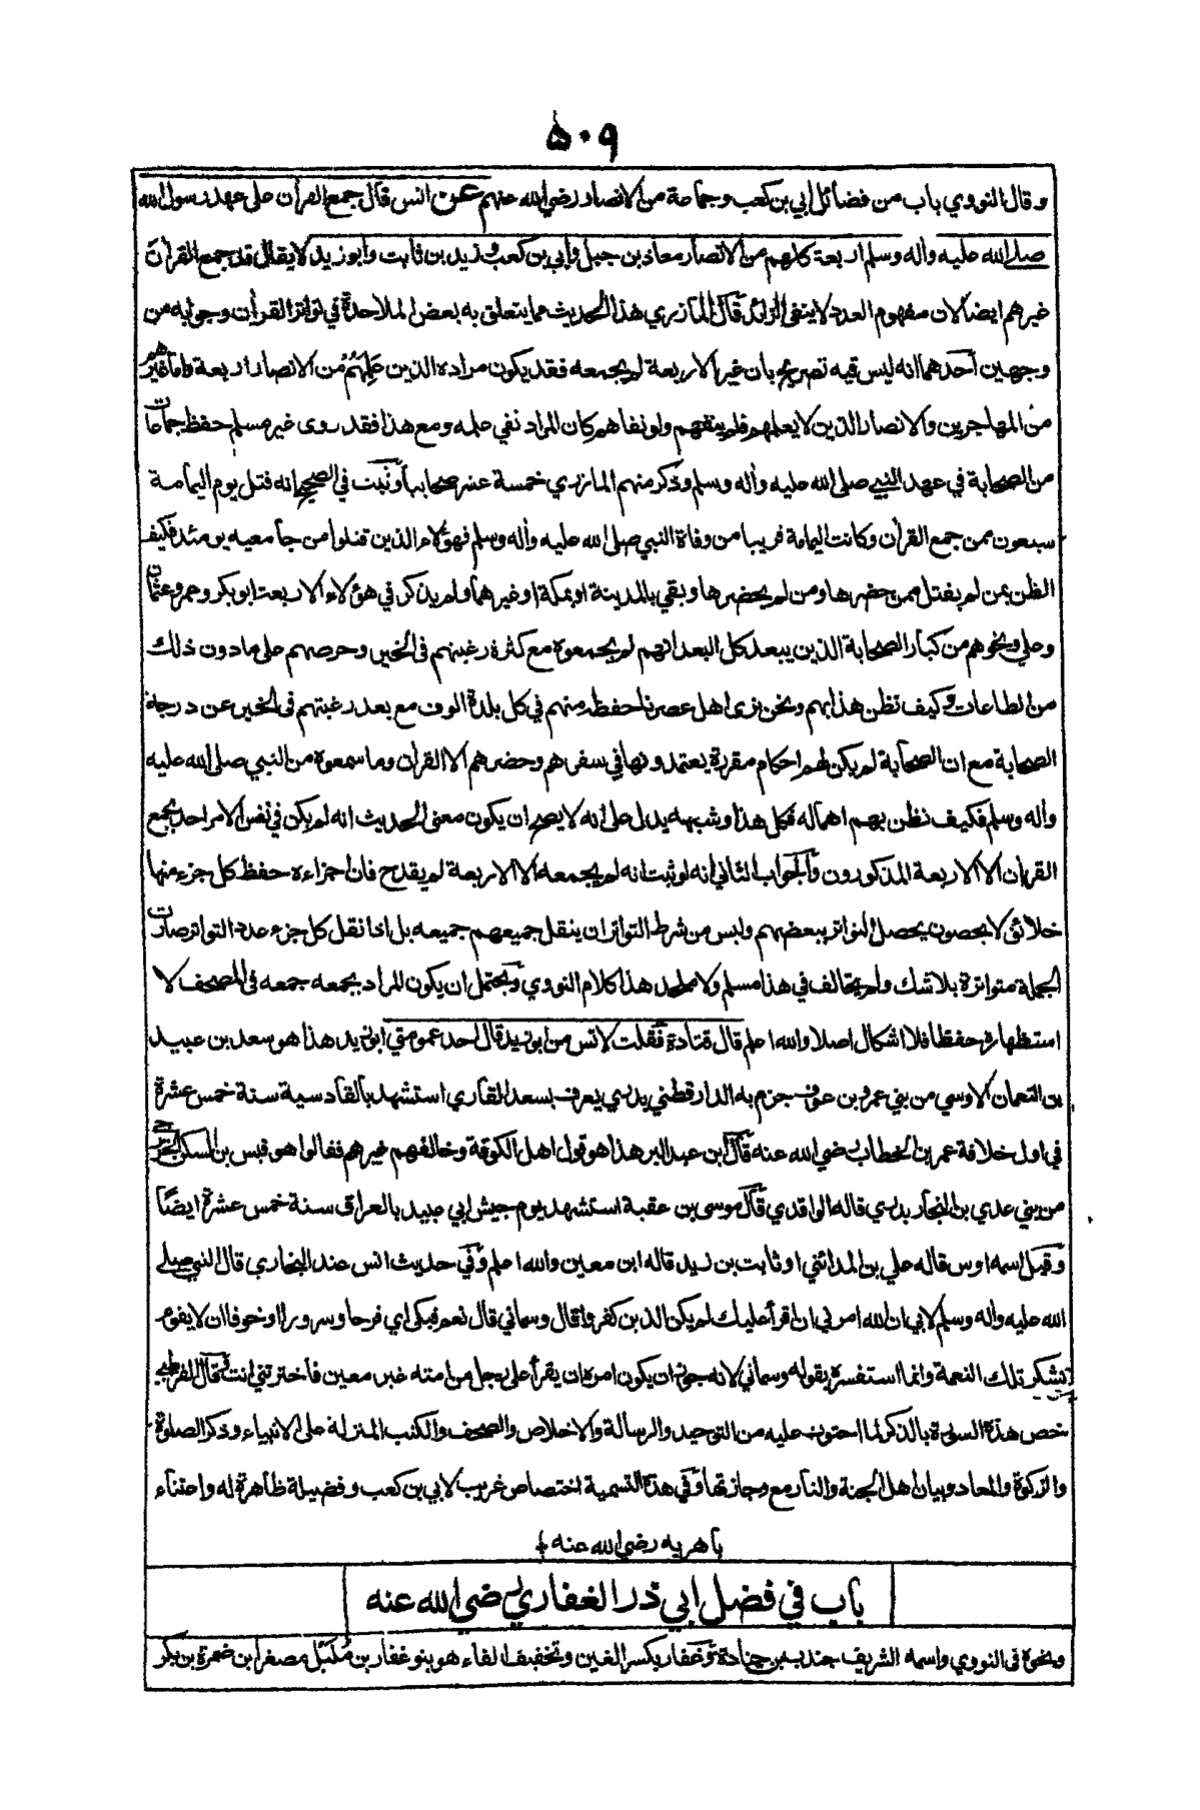 ٥٠٩
وقال النووي باب من فضائل ابي بن كعب وجماعة من الانصار رضي الله عنهم عن انس قال جمع القرأن على عهد رسول الله
صلى الله عليه وأله وسلم اربعة كلهم من الانصار معاذ بن جبل وأبي بن كعب وزيد بن ثابت وابو زيد لا يقال قد جمع القرأن
غيرهم ايضا لان مفهوم العدد لا ينفي الزائد قال المازري هذا الحديث مما يتعلق به بعض الملاحدة في تواتر القرأن وجوابه من
وجهين أحدهما انه ليس فيه تصريح بان غير الاربعة لم يجمعه فقد يكون مراده الذين علمهم من الانصار اربعة واما غيرهم
من المهاجرين والانصار الذين لا يعلمهم فلم ينفهم ولو نفاهم كان المراد نفي علمه ومع هذا فقد روى غير مسلم حفظ جماعات
من الصحابة في عهد النبي صلى الله عليه وأله وسلم وذكر منهم المازري خمسة عشر صحابيا وثبت في الصحيح انه قتل يوم اليمامة
سبعون ممن جمع القرأن وكانت اليمامة قريبا من وفاة النبي صلى الله عليه وأله وسلم فهؤلاء الذين قتلوا من جامعيه يومئذ فكيف
الظن بمن لم يقتل ممن حضرها ومن لم يحضرها وبقي بالمدينة او بمكة او غيرهما ولم يذكر في هؤلاء الاربعة ابو بكر وعمر وعثمان
وعلي ونحوهم من كبار الصحابة الذين يبعد كل البعد انهم لم يجمعوه مع كثرة رغبتهم في الخير وحرصهم على ما دون ذلك
من الطاعات وكيف نظن هذا بهم ونحن نرى اهل عصرنا حفظه منهم في كل بلدة الوف مع بعد رغبتهم في الخير عن درجة
الصحابة مع ان الصحابة لم يكن لهم احكام مقررة يعتمدونها في سفرهم وحضرهم الا القرأن وما سمعوه من النبي صلى الله عليه
وأله وسلم فكيف نظن بهم اهماله فكل هذا وشبهه يدل على انه لا يصح ان يكون معنى الحديث انه لم يكن في نفس الامر احد يجمع
القرأن الا الاربعة المذكورون والجواب الثاني انه لو ثبت انه لم يجمعه الا الاربعة لم يقدح فان اجزاءه حفظ كل جزء منها
خلائق لا يحصون يحصل التواتر ببعضهم وليس من شرط التواتر ان ينقل جميعهم جميعه بل اذا نقل كل جزء عدد التواتر صارت
الجملة متواترة بلا شك ولم يخالف في هذا مسلم ولا ملحد هذا كلام النووي ويحتمل ان يكون المراد بجمعه جمعه في المصحف لا
استظهاره حفظا فلا اشكال اصلا والله اعلم قال قتادة فقلت لانس من ابو زيد قال احد عمومتي ابو زيد هذا هو سعد بن عبيد
بن النعمان الاوسي من بني عمرو بن عوف جزم به الدارقطني بدري يعرف بسعد القاري استشهد بالقادسية سنة خمس عشرة
في اول خلافة عمر بن الخطاب رضي الله عنه قال ابن عبد البر هذا هو قول اهل الكوفة وخالفهم غيرهم فقالوا هو قيس بن السكن الخزرجي
من بني عدي بن النجار بدري قاله الواقدي قال موسى بن عقبة استشهد يوم جيش ابي عبيد بالعراق سنة خمس عشرة ايضًا
وقيل اسمه اوس قاله علي بن المدائني او ثابت بن زيد قاله ابن معين والله اعلم وفي حديث انس عند البخاري قال النبي صلى
الله عليه وأله وسلم لابي ان الله امرني ان اقرأ عليك لم يكن الذين كفروا قال وسماني قال نعم فبكى اي فرحا وسرورا او خوفا ان لا يقوم
بشكر تلك النعمة وانما استفسره بقوله وسماني لانه جوز ان يكون امره ان يقرأ على رجل من امته غير معين فاخترتني انت قال القرطبي
خص هذه السورة بالذكر لما احتوت عليه من التوحيد والرسالة والاخلاص والصحف والكتب المنزلة على الانبياء وذكر الصلوة
والزكوة والمعاد وبيان اهل الجنة والنار مع وجازتها وفي هذه التسمية اختصاص غريب لابي بن كعب وفضيلة ظاهرة له واعتناء
باهر به رضي الله عنه
باب في فضل ابي ذر الغفاري رضي الله عنه
ونحوه في النووي واسمه الشريف جندب بن جنادة وغفار بكسر الغين وتخفيف الفاء هو بنو غفار بن مُلَيل مصغرا بن ضمرة بن بكر